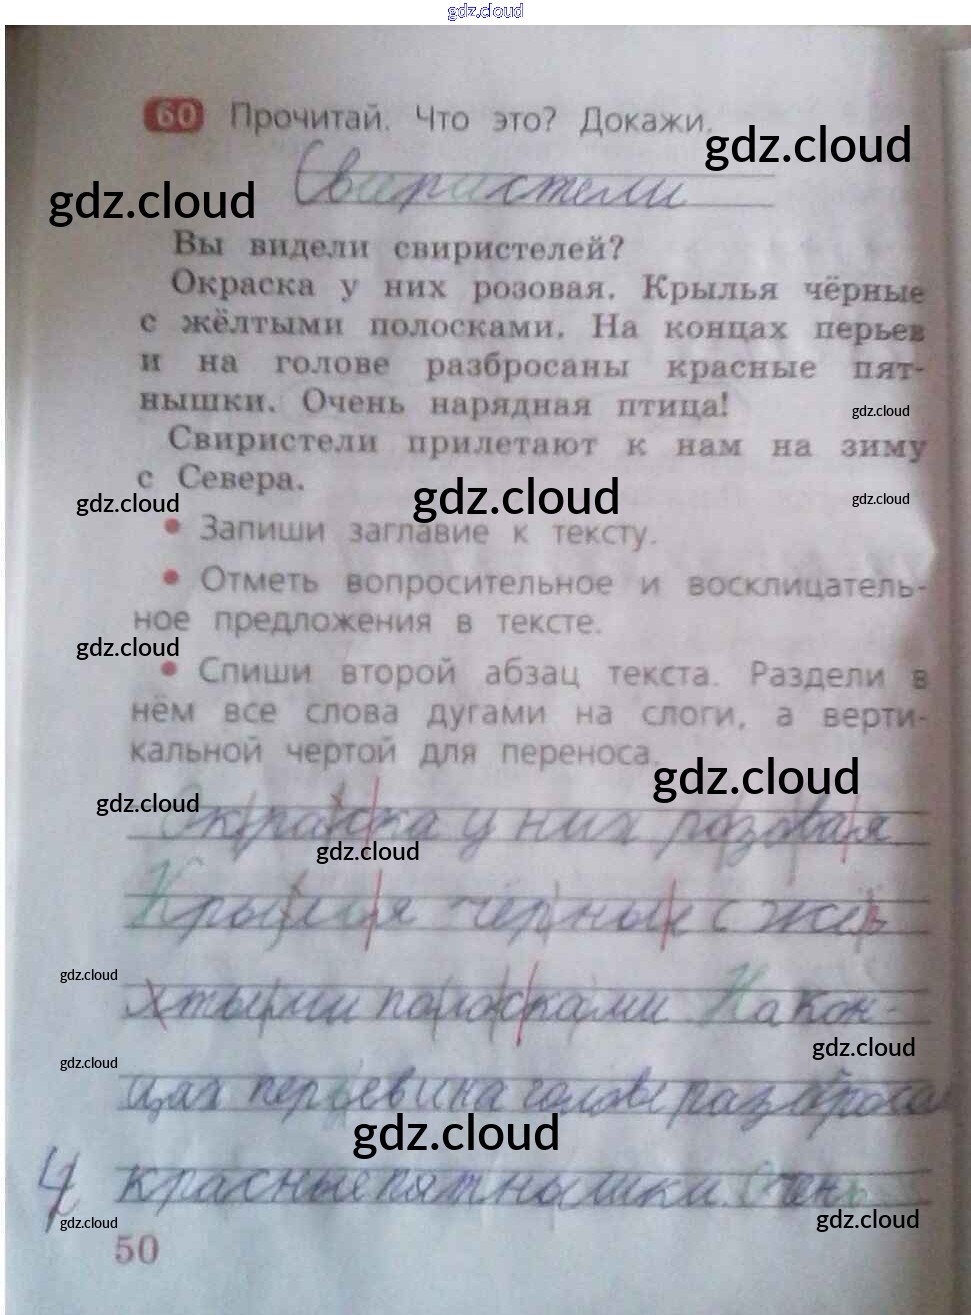 gdz.cloud
60 Прочитай. Что это? Докажи.
gdz.cloud
gdz.cloud
Свиристели
Вы видели свиристелей?
Окраска у них розовая. Крылья чёрные
с жёлтыми полосками. На концах перьев
и на голове разбросаны красные пят-
нышки. Очень нарядная птица!
gdz.cloud
Свиристели прилетают к нам на зиму
с Севера.
gdz.cloud
gdz.cloud
gdz.cloud
• Запиши заглавие к тексту.
• Отметь вопросительное и восклицатель-
ное предложения в тексте.
gdz.cloud
• Спиши второй абзац текста. Раздели в
нём все слова дугами на слоги, а верти-
кальной чертой для переноса.
gdz.cloud
gdz.cloud
Окраска у них розовая
gdz.cloud
Крылья чёрные с
gdz.cloud
тыми полосками На кон-
gdz.cloud
gdz.cloud
цах перьев и на голове
gdz.cloud
4 красные пятнышки. Очень
gdz.cloud
gdz.cloud
50